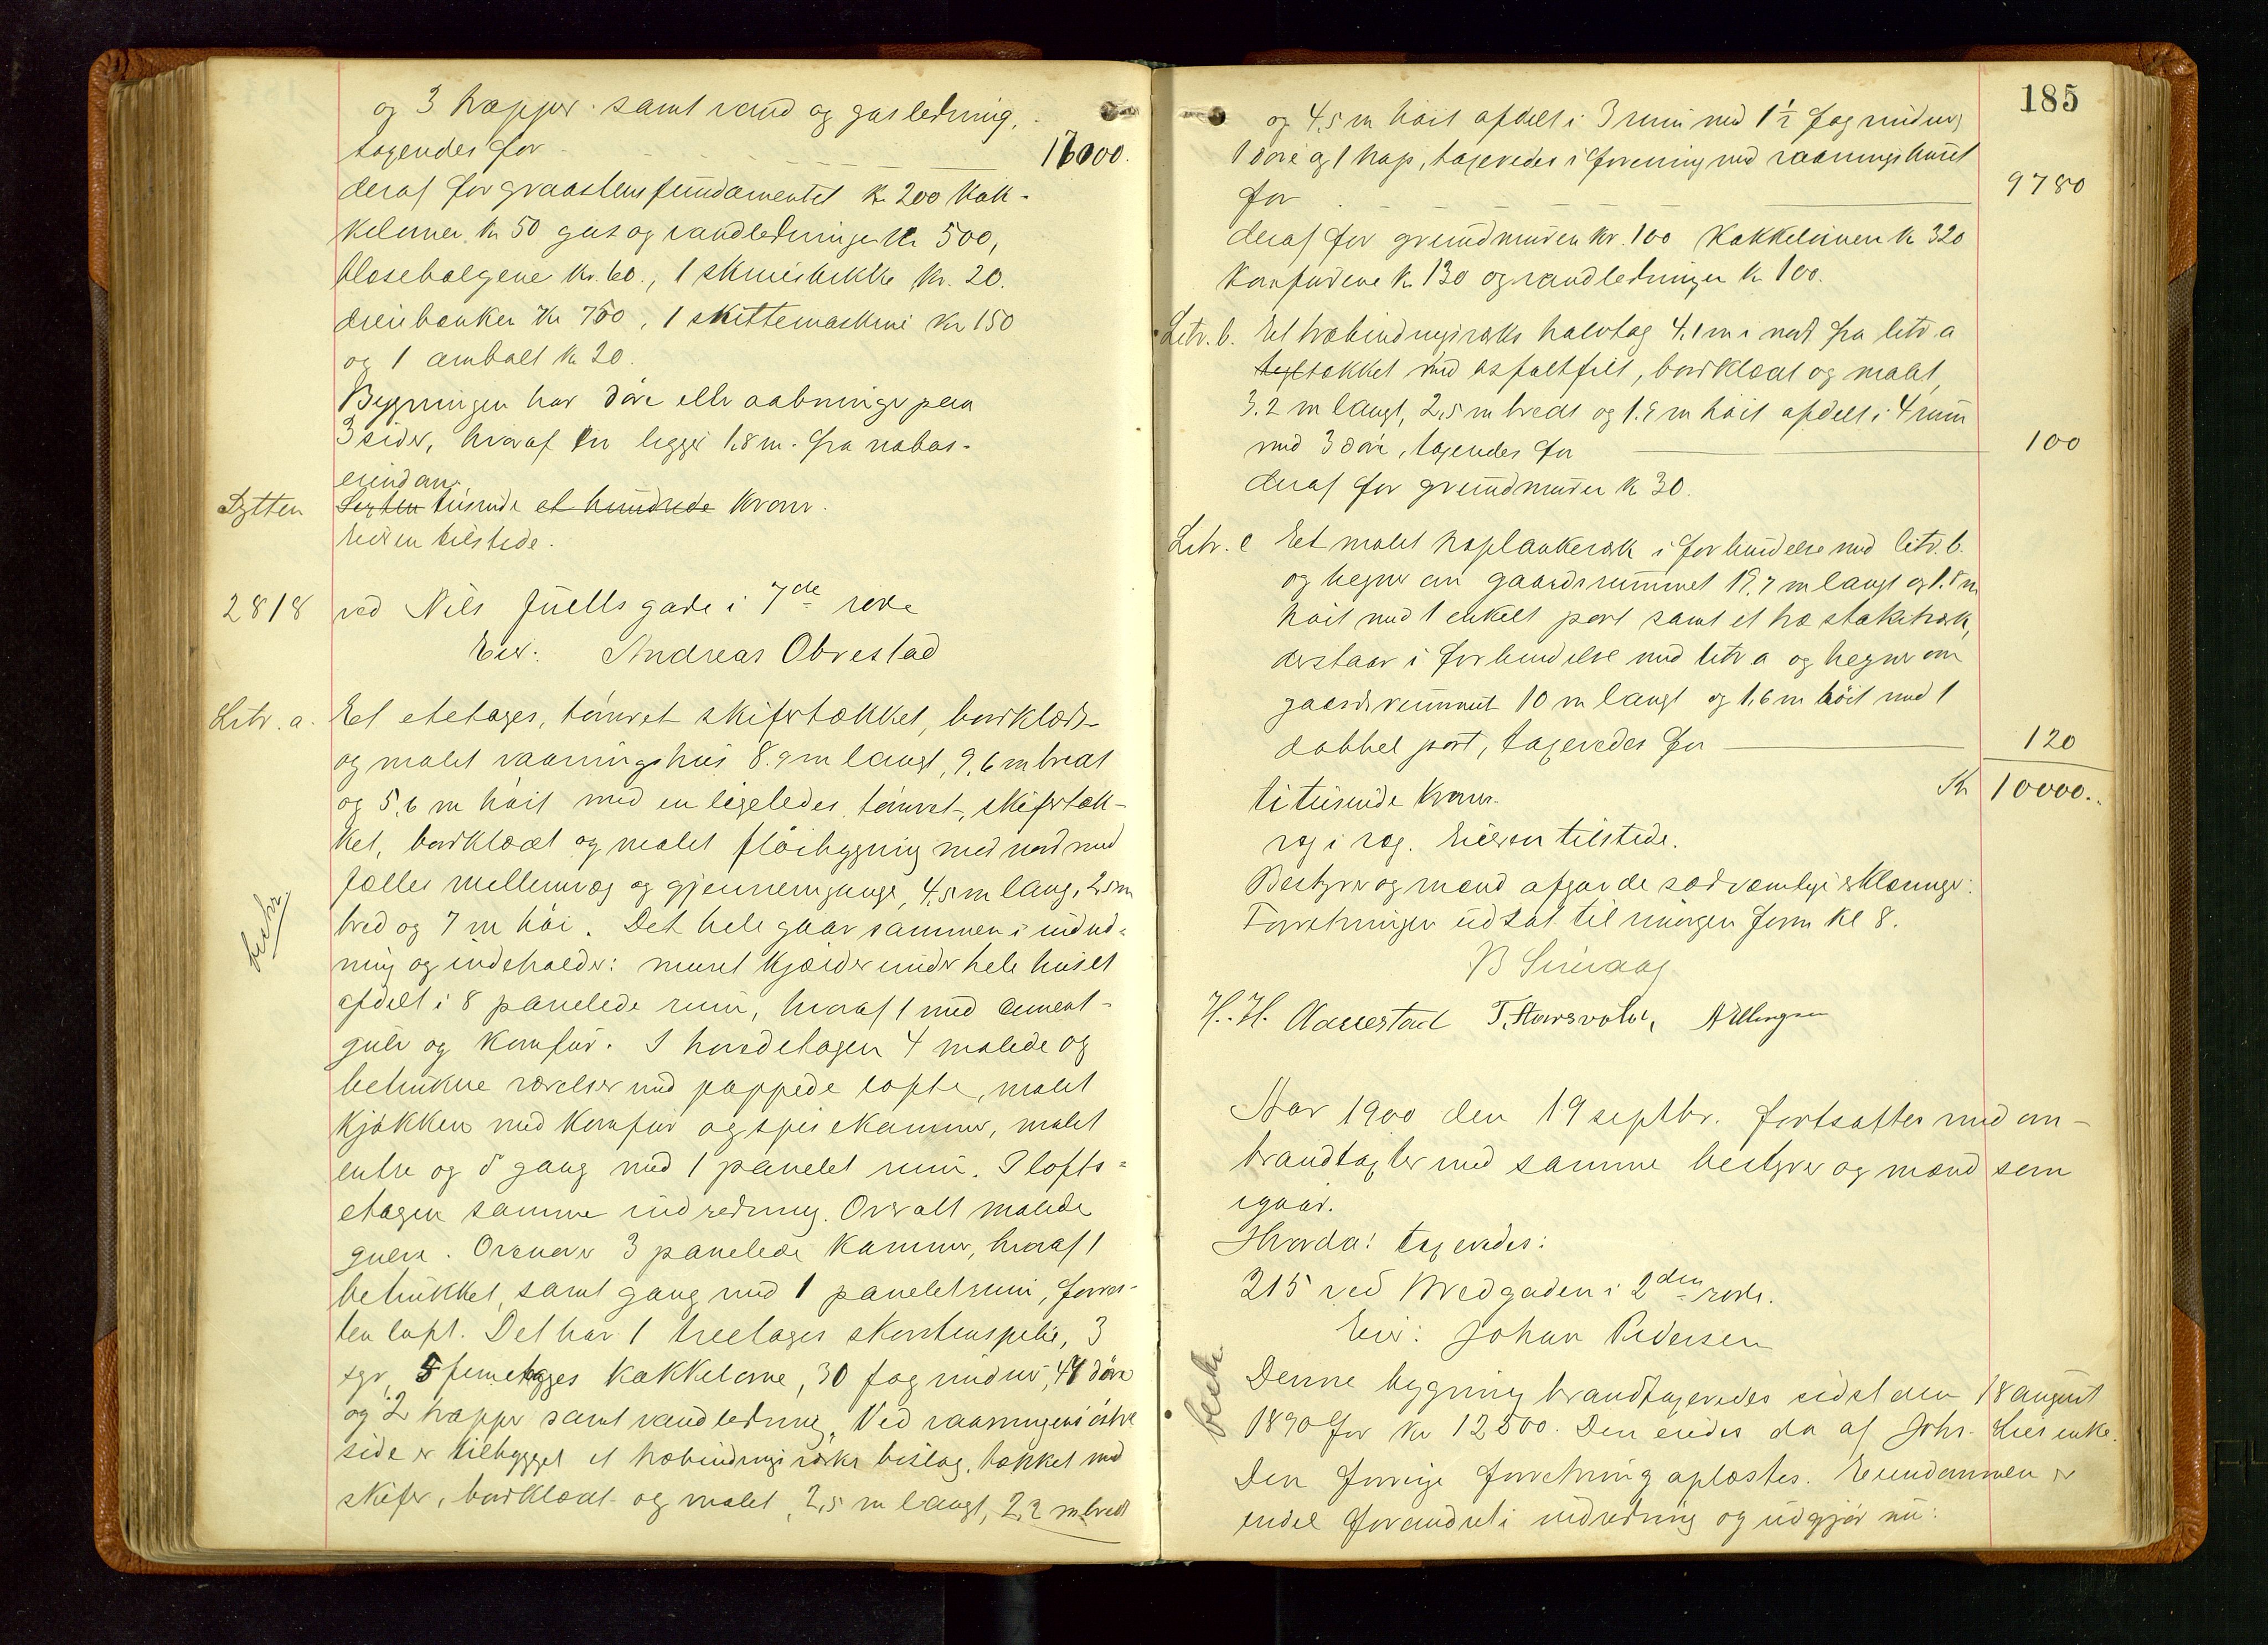 og 3 trapper samt vand og gasledning,
taxeredes for 17000.
deraf for graastensfundamentet kr 200 kak-
kelovne kr 50 gas og vandledninger kr 500,
blæsebælgene kr. 60., 1 skruestikke kr. 20.
dreiebænker kr 700, 1 skittemaskine kr 150
og 1 ambolt kr 20.
Bygningen har døre eller aabninger paa
3 sider, hvoraf en ligger 1.8 m. fra nabos-
eiendom.
Sytten Sexten tusinde et hundrede kroner.
Eieren tilstede.
2818 ved Nils Juells gade i 7de rode
Eier: Andreas Obrestad
Litr. a. Et etetages, tømret skifertækket, bordklædt
og malet vaaningshus 8.9 m langt, 9,6 m bredt
og 5,6 m høit med en ligeledes tømret, skifertæk-
ket, bordklædt og malet fløibygning mod nord med
fælles mellemvæg og gjennemgange, 4,5 m lang, 2,5 m
bred og 7 m høi. Det hele gaar sammen i indred-
ning og indeholder: muret kjælder under hele huset
afdelt i 8 panelede rum, hvoraf 1 med cement-
gulv og komfur. I hovedetagen 4 malede og
betrukne værelser med pappede lofte, malet
kjøkken med komfur og spisekammer, malet
entre og gang med 1 panelet rum. I lofts-
etagen samme indredning. Overalt malede
gulve. Ovenover 3 panelede kammer, hvoraf 1
betrukket, samt gang med 1 panelet rum, forres-
ten loft. Det har 1 treetages skorstenspibe, 3
sgr, 5 femetages kakkelovne, 30 fag vinduer, 41 døre
og 2 trapper samt vandledning. Ved vaaningens østre
side er tilbygget et træbindingsverks bislag, tækket med
skifer, bordklædt og malet, 2,5 m langt, 2,2 m bredt
besk.
185
og 4,5 m høit afdelt i 3 rum med 1 1/2 fag vinduer,
1 døre og 1 trap, taxeredes i forening med vaaningshuset
for 9780
deraf for grundmuren kr. 100 kakkelovnen kr 320
komfurene kr 130 og vandledningen kr 100.
Litr. b. Et træbindingsverks halvtag 4.1 m i nord fra litr. a
tegl tækket med asfaltfilt, bordklædt og malet,
3.2 m langt, 2,5 m bredt og 1.9 m høit afdelt i 4 rum
med 3 døre, taxeredes for 100
deraf for grundmuren kr 30.
Litr. c Et malet træplankeverk i forbindelse med litr. b.
og hegner om gaardsrummet 19,7 m langt og 1.8 m
høit med 1 enkelt port samt et træ stakitverk,
der staar i forbindelse med litr a og hegner om
gaardsrummet 10 m langt og 1,6 m høit med 1
dobbel port, taxeredes for 120
ti tusinde kroner. Kr 10000.
reg i reg. Eieren tilstede.
Bestyrer og mænd afgav de sædvanlige erklæringer.
Forretningen udsat til imorgen form kl 8.
H. H. Aarrestad T. Horsvold,
Aar 1900 den 19 septbr. fortsattes med om-
brandtaxter med samme bestyrer og mænd som
igaar.
Hvorda: taxeredes:
215 ved Bredgaden i 2den rode.
Eier: Johan Pedersen
besk. Denne bygning brandtaxeredes sidst den 18 august
1890 for kr 12500. Den eiedes da af Johs. Lies enke.
Den forrige forretning oplæstes. Eiendommen er
endel forandret i indredning og udgjør nu: